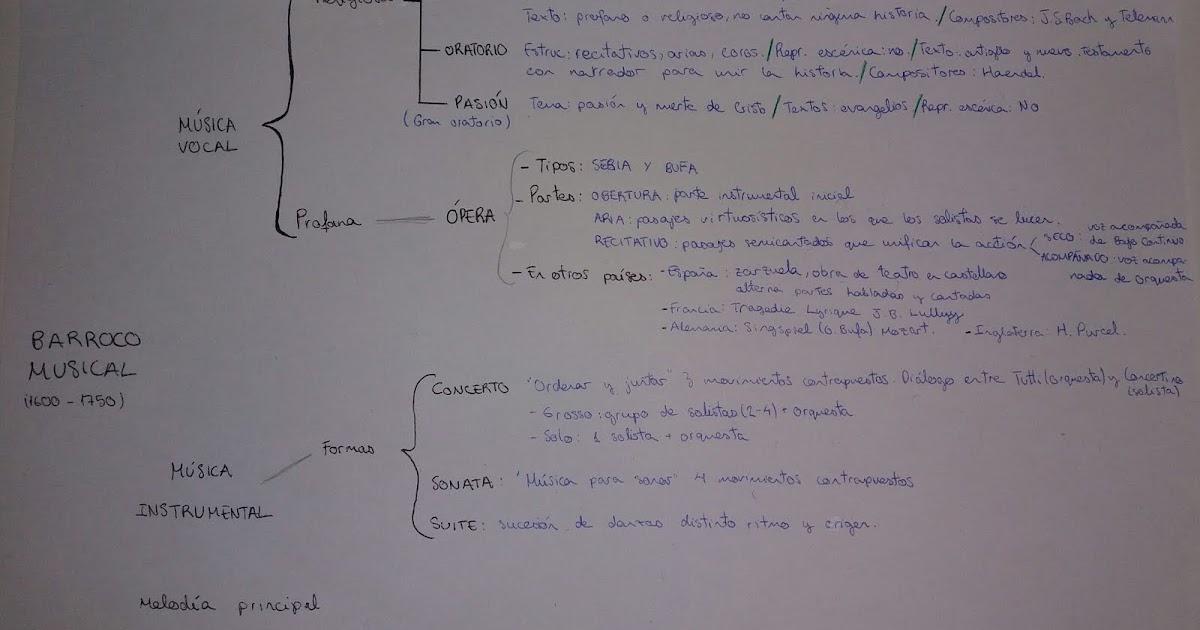 Texto: profano o religioso, no cantan ninguna historia. / Compositores: J.S Bach y Teleman
ORATORIO Estruc: recitativos, arias, coros. / Repr. escénica: no. / Texto: antiguo y nuevo testamento
con narrador para unir la historia. / Compositores: Haendel.
PASIÓN Tema: pasión y muerte de Cristo / Textos: evangelios / Repr. escénica: NO
(Gran oratorio)
MÚSICA
VOCAL
- Tipos: SERIA Y BUFA
- Partes: OBERTURA: parte instrumental inicial
ARIA: pasajes virtuosísticos en los que los solistas se lucen.
Profana ÓPERA
RECITATIVO: pasajes semicantados que unifican la acción
SECO: voz acompañada
de Bajo Continuo
ACOMPAÑADO: voz acompa-
ñada de orquesta
- En otros países: - España: zarzuela, obra de teatro en castellano
alterna partes habladas y cantadas
- Francia: Tragedie Lyrique J.B. Lullyy
- Alemania: Singspiel (O. Bufa) Mozart. - Inglaterra: H. Purcel.
BARROCO
MUSICAL
(1600 - 1750)
CONCERTO "Ordenar y juntar" 3 movimientos contrapuestos. Diálogo entre Tutti (orquesta) y Concertino
(solista)
- Grosso: grupo de solistas (2-4) + orquesta
- Solo: 1 solista + orquesta
Formas
MÚSICA
INSTRUMENTAL
SONATA: "Música para sonar" 4 movimientos contrapuestos
SUITE: sucesión de danzas distinto ritmo y origen.
Melodía principal